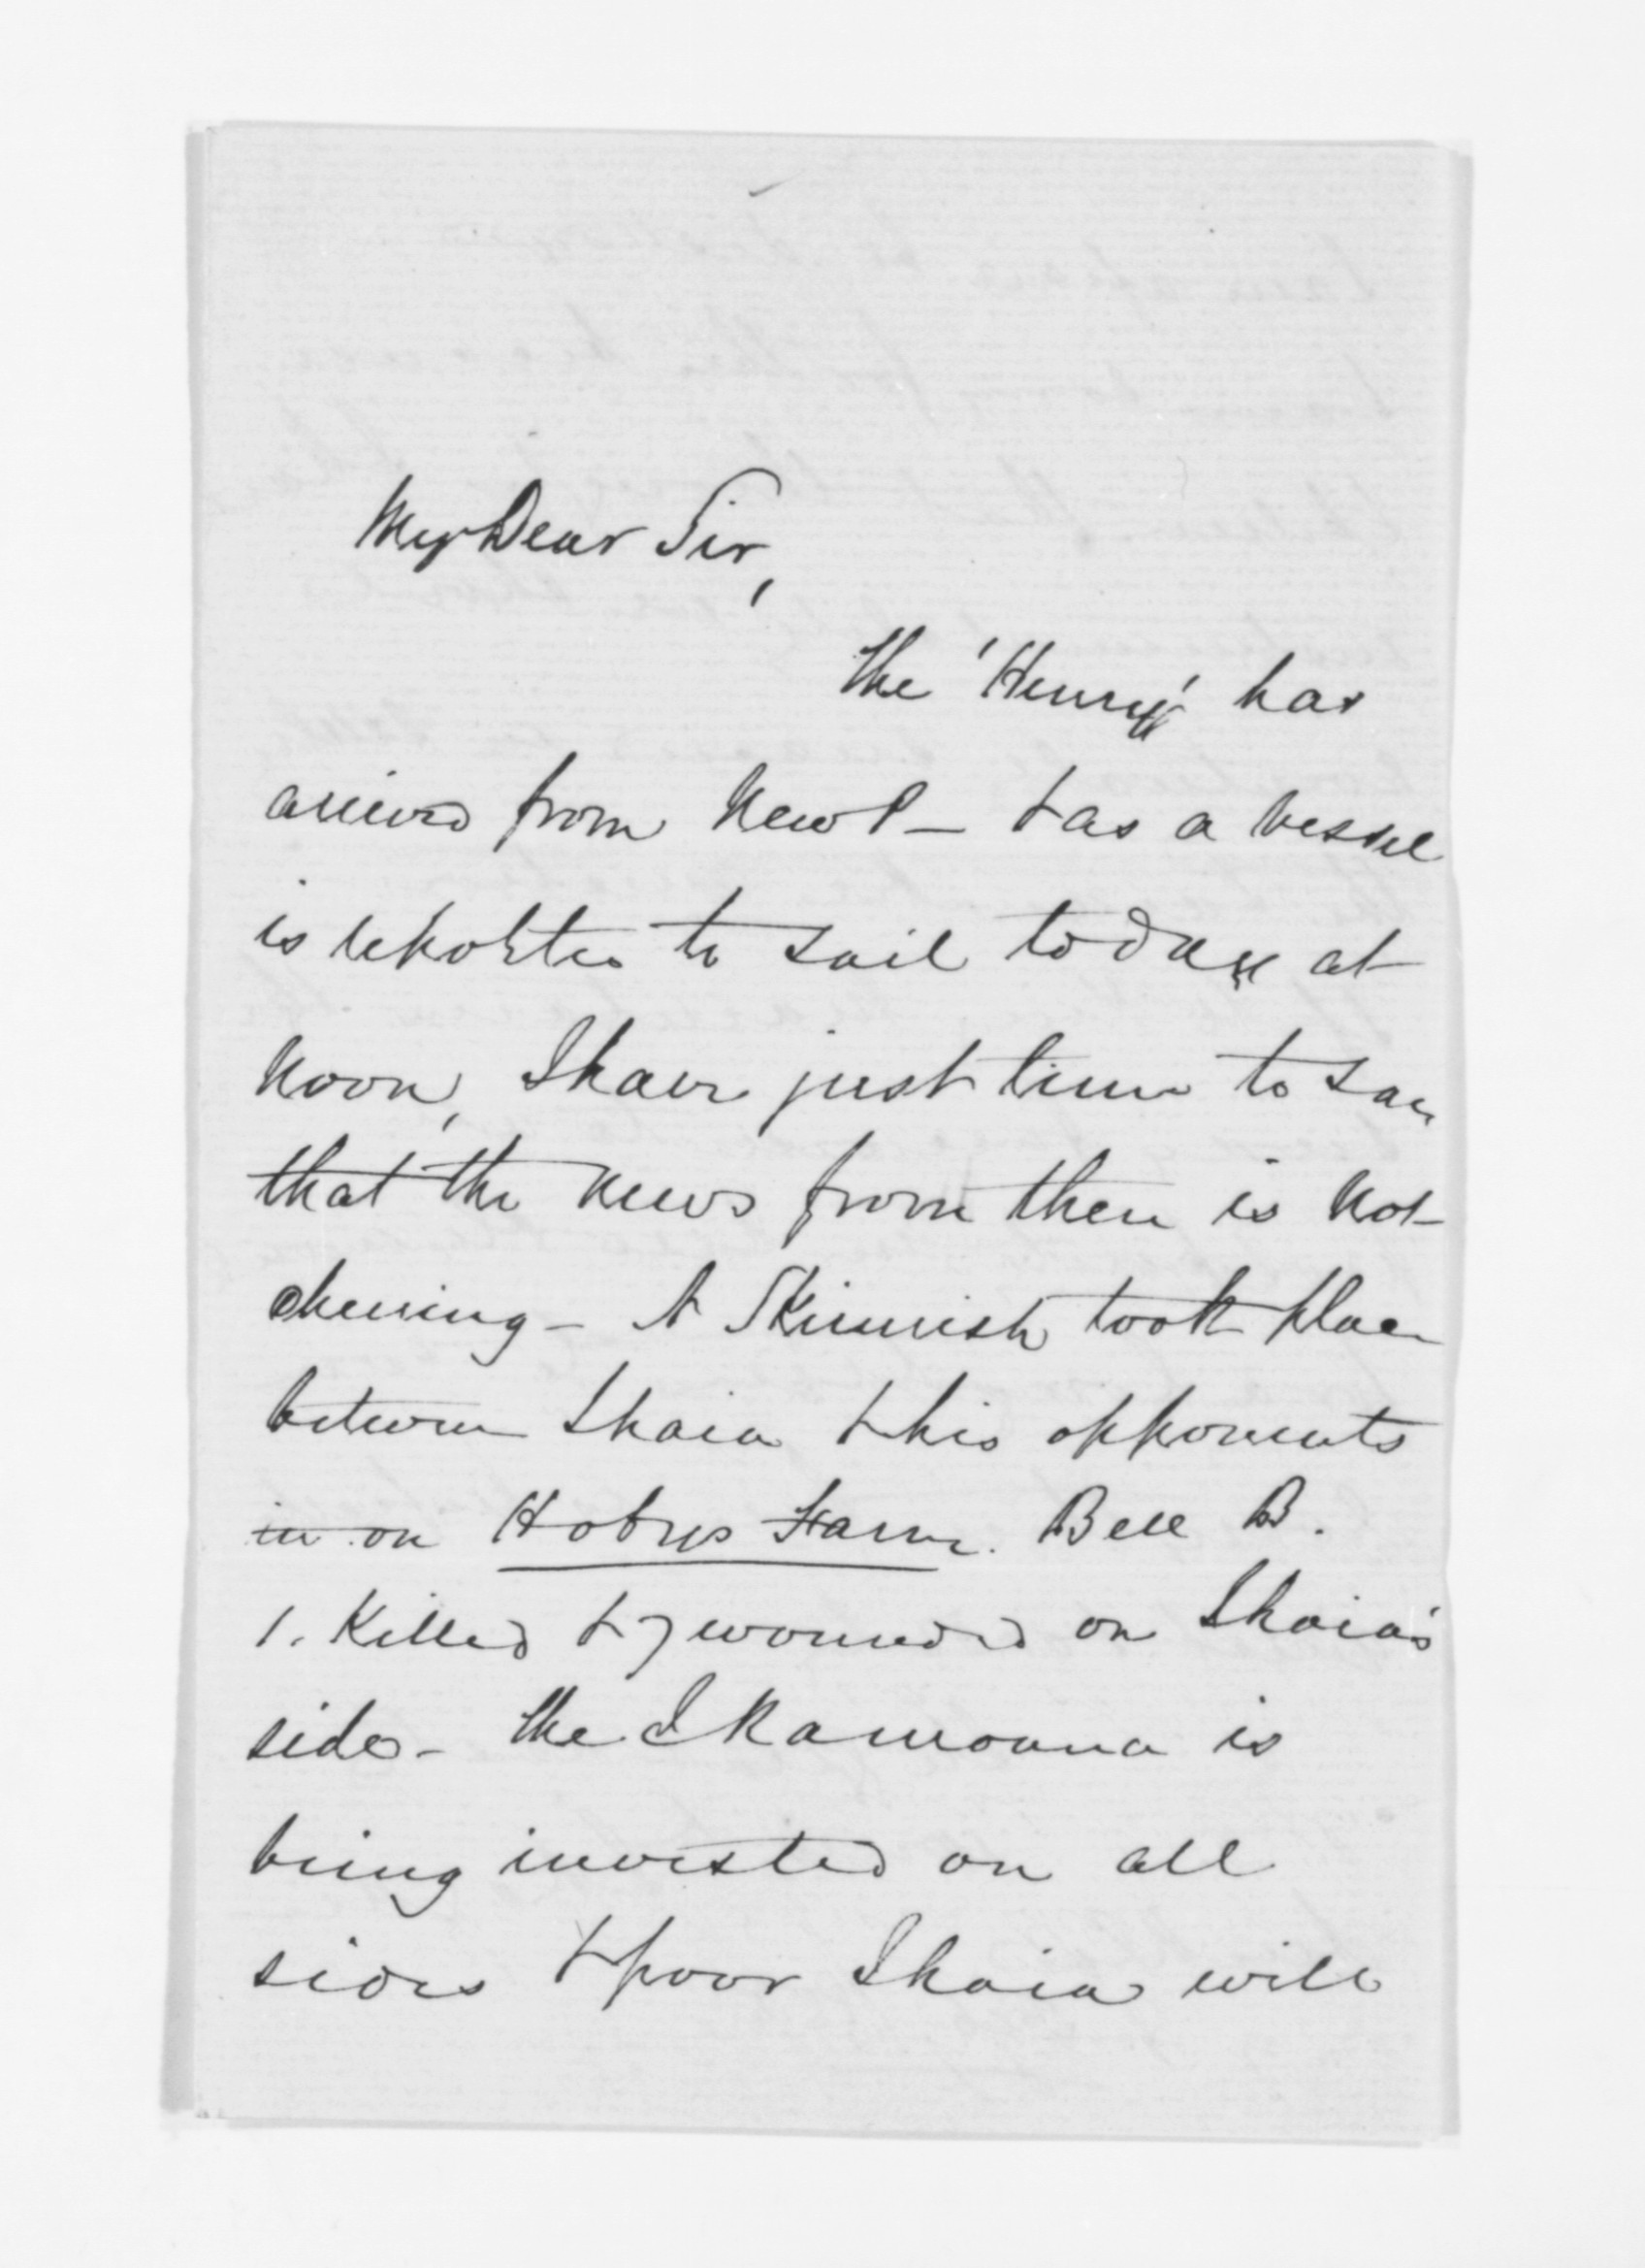 My Dear Sir,
The 'Henry' has
arrived from New P - & as a vessel
is reported to sail today at
noon, I have just time to say
that the news from there is not
cheering - A Skirmish took place
between Ihaia & his opponents
in on Hobys Farm. Bell B.
1. Killed & 7 wounded on Ihaia's
side - The Ikamoana is
being invested on all
sides & poor Ihaia will